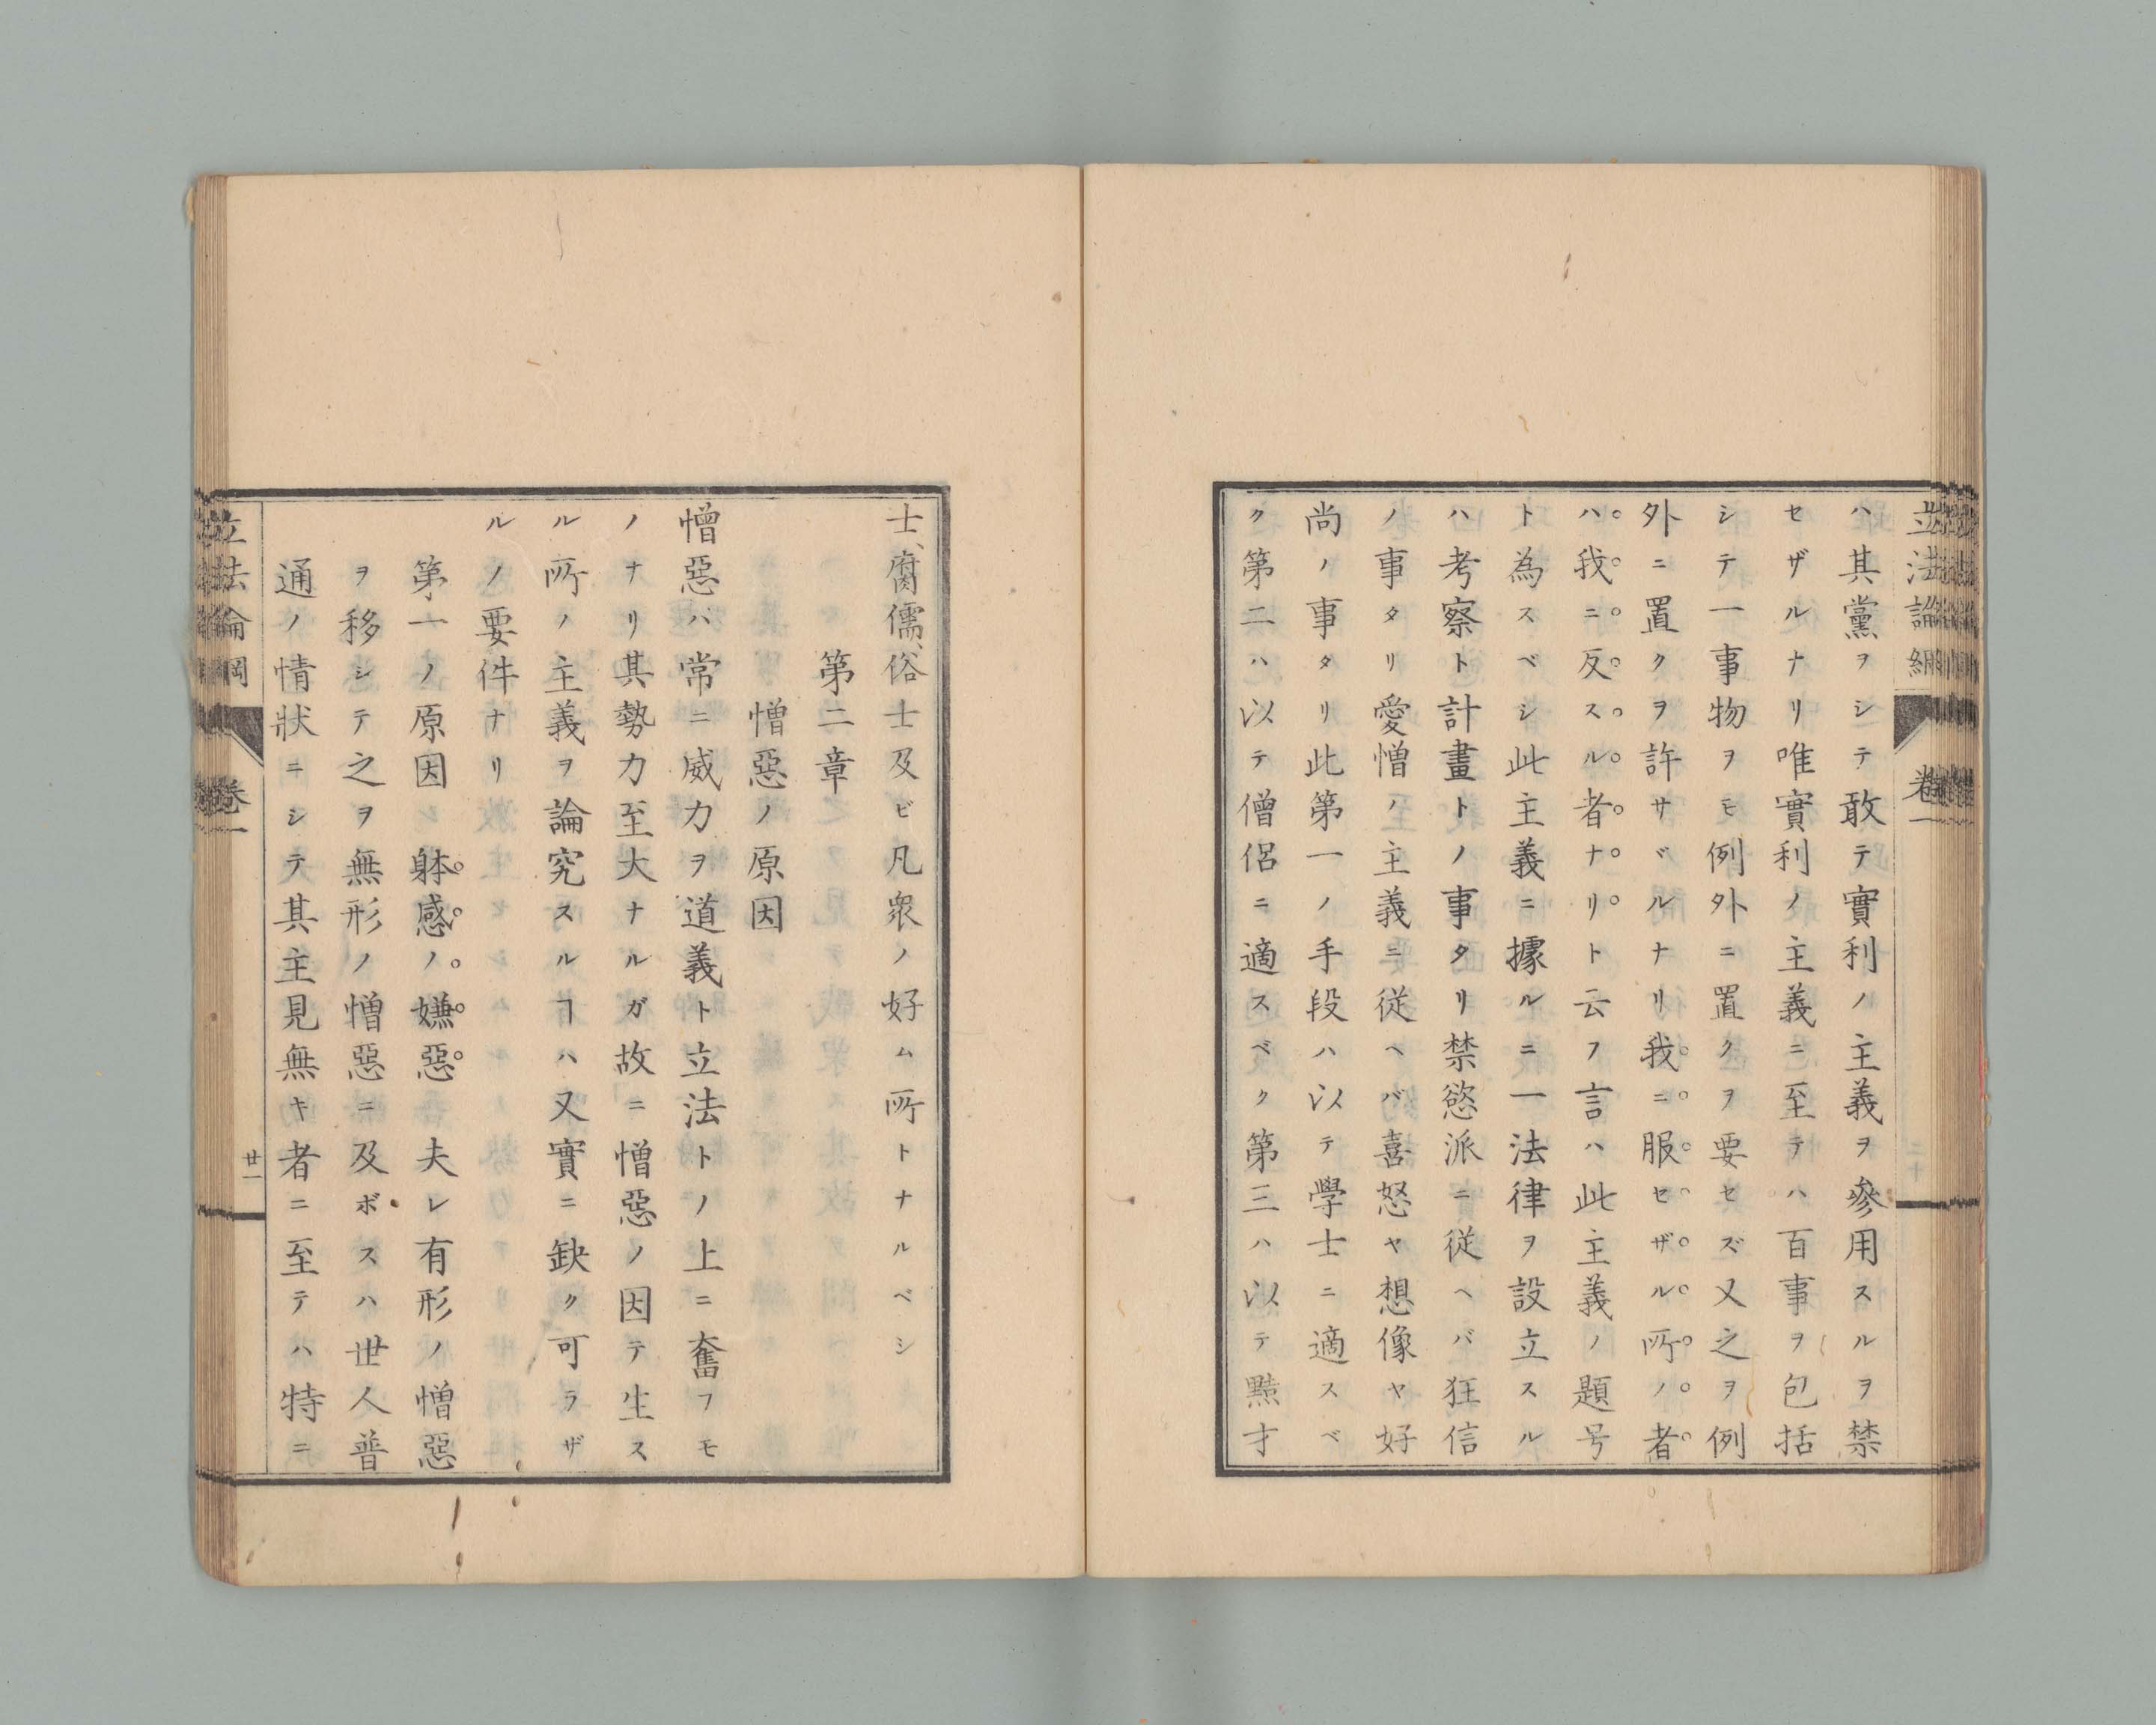 立法論綱 卷一
ハ其黨ヲシテ敢テ實利ノ主義ヲ參用スルヲ禁
セザルナリ唯實利ノ主義ニ至テハ百事ヲ包括
シテ一事物ヲモ例外ニ置クヲ要セズ又之ヲ例
外ニ置クヲ許サヾルナリ我ニ服セザル所ノ者
ハ我ニ反スル者ナリト云フ言ハ此主義ノ題号
ト為スベシ此主義ニ據ルニ一法律ヲ設立スル
ハ考察ト計畫トノ事タリ禁慾派ニ従ヘバ狂信
ノ事タリ愛憎ノ主義ニ従ヘバ喜怒ヤ想像ヤ好
尚ノ事タリ此第一ノ手段ハ以テ學士ニ適スベ
ク第二ハ以テ僧侶ニ適スベク第三ハ以テ黠才
士、腐儒、俗士及ビ凡衆ノ好ム所トナルベシ
第二章
憎惡ノ原因
憎惡ハ常ニ威力ヲ道義ト立法トノ上ニ奮フモ
ノナリ其勢力至大ナルガ故ニ憎惡ノ因テ生ス
ル所ノ主義ヲ論究スルヿハ又實ニ缺ク可ラザ
ルノ要件ナリ
第一ノ原因 躰感ノ嫌惡 夫レ有形ノ憎惡
ヲ移シテ之ヲ無形ノ憎惡ニ及ボスハ世人普
通ノ情狀ニシテ其主見無キ者ニ至テハ特ニ
立法論綱 卷一 廿一